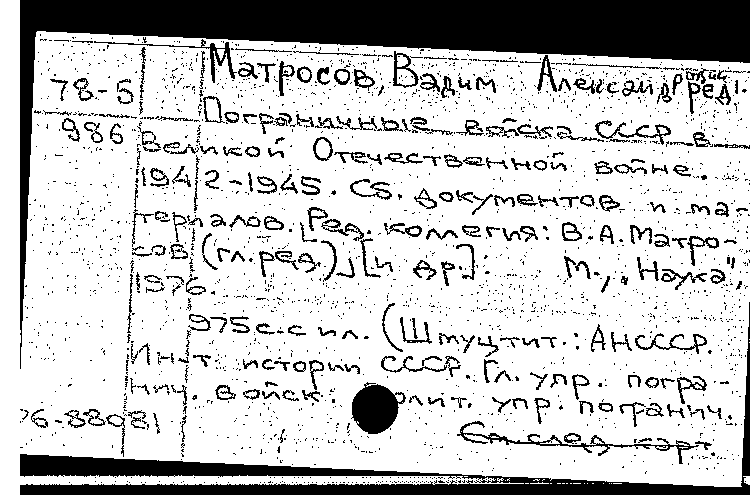 Матросов, Вадим Александрович
ред.
78-5
Пограничные войска СССР в
986
Великой Отечественной войне.
1942-1945. Сб. документов и ма-
териалов. Ред. коллегия: В.А. Матро-
сов (гл. ред.) [и др.]: М., „Наука",
1976.
975 с. с ил. (Шмуцтит.: АНСССР.
Ин-т истории СССР. Гл. упр. погра-
нич. войск. Полит. упр. погранич.
76-88081
См след карт.